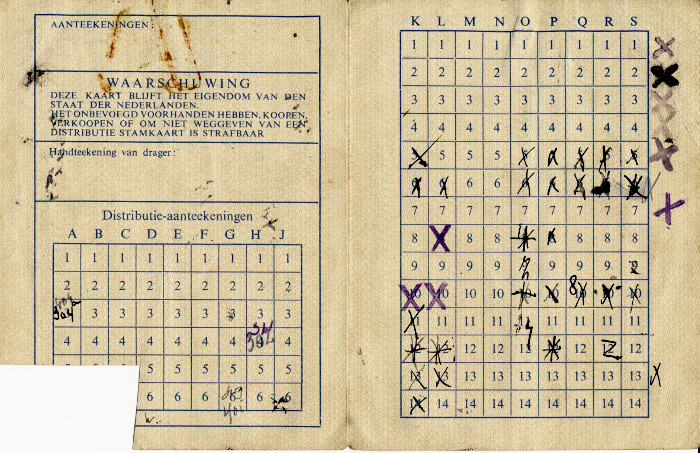 AANTEEKENINGEN:
WAARSCHUWING
DEZE KAART BLIJFT HET EIGENDOM VAN DEN
STAAT DER NEDERLANDEN.
HET ONBEVOEGD VOORHANDEN HEBBEN, KOOPEN,
VERKOOPEN OF OM NIET WEGGEVEN VAN EEN
DISTRIBUTIE STAMKAART IS STRAFBAAR
Handteekening van drager:
Distributie-aanteekeningen
A B C D E F G H J
1 1 1 1 1 1 1 1 1
2 2 2 2 2 2 2 2 2
3 3 3 3 3 3 3 3
4 4 4 4 4 4 4 4
5 5 5 5 5 5 5 5 5
6 6 6 6 6 6
K L M N O P Q R S
1 1 1 1 1 1 1 1 1
2 2 2 2 2 2 2 2 2
3 3 3 3 3 3 3 3 3
4 4 4 4 4 4 4 4 4
5 5 5
6 6
7 7 7 7 7 7 7 7 7
8 8 8 8 8 8
9 9 9 9 9 9 9
10 10 10 10
11 11 11 11 11 11 11
12 12 12 12 12
13 13 13 13 13 13 13 13 13
14 14 14 14 14 14 14 14 14